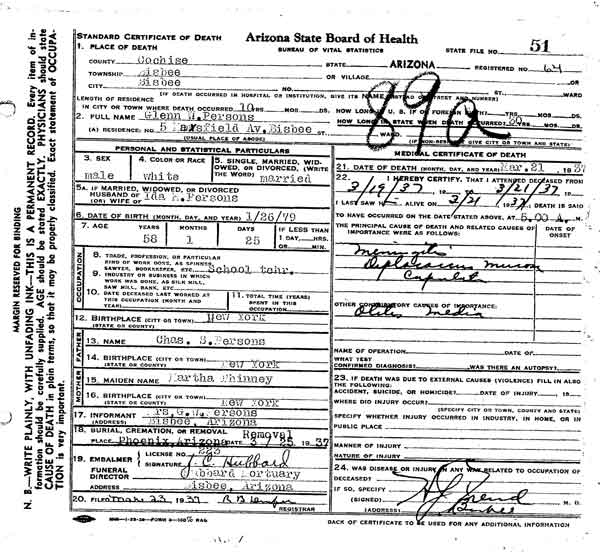 N. B.—WRITE PLAINLY, WITH UNFADING INK—THIS IS A PERMANENT RECORD. Every item of information should be carefully supplied. AGE should be stated EXACTLY. PHYSICIANS should state CAUSE OF DEATH in plain terms, so that it may be properly classified. Exact statement of OCCUPATION is very important.
MARGIN RESERVED FOR BINDING
STANDARD CERTIFICATE OF DEATH
Arizona State Board of Health
BUREAU OF VITAL STATISTICS
STATE FILE NO. 51
1. PLACE OF DEATH
COUNTY Cochise STATE ARIZONA REGISTERED NO. 64
TOWNSHIP Bisbee OR VILLAGE OR
CITY Bisbee NO. ST. WARD
(IF DEATH OCCURRED IN HOSPITAL OR INSTITUTION, GIVE ITS NAME INSTEAD OF STREET AND NUMBER)
LENGTH OF RESIDENCE
IN CITY OR TOWN WHERE DEATH OCCURRED 10 YRS. MOS. DS. HOW LONG IN U. S. IF OF FOREIGN BIRTH? YRS. MOS. DS.
2. FULL NAME Glenn W. Persons HOW LONG IN STATE WHEN DEATH OCCURRED 20 YRS. MOS. DS.
(A) RESIDENCE: NO. 5 Mansfield Av. Bisbee ST. WARD.
(USUAL PLACE OF ABODE) (IF NON-RESIDENT GIVE CITY OR TOWN AND STATE)
89a
PERSONAL AND STATISTICAL PARTICULARS
3. SEX male
4. COLOR OR RACE white
5. SINGLE, MARRIED, WIDOWED, OR DIVORCED, (WRITE THE WORD) married
5A. IF MARRIED, WIDOWED, OR DIVORCED
HUSBAND OF (OR) WIFE OF Ida M. Persons
6. DATE OF BIRTH (MONTH, DAY, AND YEAR) 1/26/79
7. AGE YEARS 58 MONTHS 1 DAYS 25 IF LESS THAN 1 DAY, HRS. OR MIN.
OCCUPATION
8. TRADE, PROFESSION, OR PARTICULAR KIND OF WORK DONE, AS SPINNER, SAWYER, BOOKKEEPER, ETC. School tchr.
9. INDUSTRY OR BUSINESS IN WHICH WORK WAS DONE, AS SILK MILL, SAW MILL, BANK, ETC.
10. DATE DECEASED LAST WORKED AT THIS OCCUPATION (MONTH AND YEAR)
11. TOTAL TIME (YEARS) SPENT IN THIS OCCUPATION
12. BIRTHPLACE (CITY OR TOWN) New York
(STATE OR COUNTY)
FATHER
13. NAME Chas. S. Persons
14. BIRTHPLACE (CITY OR TOWN) New York
(STATE OR COUNTY)
MOTHER
15. MAIDEN NAME Martha Phinney
16. BIRTHPLACE (CITY OR TOWN) New York
(STATE OR COUNTY)
17. INFORMANT Mrs. G. W. Persons
(ADDRESS) Bisbee, Arizona
18. BURIAL, CREMATION, OR REMOVAL Removal
PLACE Phoenix, Arizona DATE 3/25 1937
19. EMBALMER LICENSE NO. 223
SIGNATURE J. C. Hubbard
FUNERAL DIRECTOR Hubbard Mortuary
ADDRESS Bisbee, Arizona
20. FILED Mar 23 1937
REGISTRAR
MEDICAL CERTIFICATE OF DEATH
21. DATE OF DEATH (MONTH, DAY, AND YEAR) Mar. 21 1937
22. I HEREBY CERTIFY, THAT I ATTENDED DECEASED FROM
3/19/37, TO 3/21/37
I LAST SAW H ALIVE ON 3/21 1937, DEATH IS SAID
TO HAVE OCCURRED ON THE DATE STATED ABOVE, AT 5.00 A. M.
THE PRINCIPAL CAUSE OF DEATH AND RELATED CAUSES OF IMPORTANCE WERE AS FOLLOWS: DATE OF ONSET
Meningitis
Diplococcus
OTHER CONTRIBUTORY CAUSES OF IMPORTANCE:
Otitis Media
NAME OF OPERATION DATE OF
WHAT TEST CONFIRMED DIAGNOSIS? WAS THERE AN AUTOPSY?
23. IF DEATH WAS DUE TO EXTERNAL CAUSES (VIOLENCE) FILL IN ALSO THE FOLLOWING:
ACCIDENT, SUICIDE, OR HOMICIDE? DATE OF INJURY 19
WHERE DID INJURY OCCUR?
(SPECIFY CITY OR TOWN, COUNTY AND STATE)
SPECIFY WHETHER INJURY OCCURRED IN INDUSTRY, IN HOME, OR IN PUBLIC PLACE
MANNER OF INJURY
NATURE OF INJURY
24. WAS DISEASE OR INJURY IN ANY WAY RELATED TO OCCUPATION OF DECEASED?
IF SO, SPECIFY
(SIGNED) M. D.
(ADDRESS) Bisbee
BACK OF CERTIFICATE TO BE USED FOR ANY ADDITIONAL INFORMATION